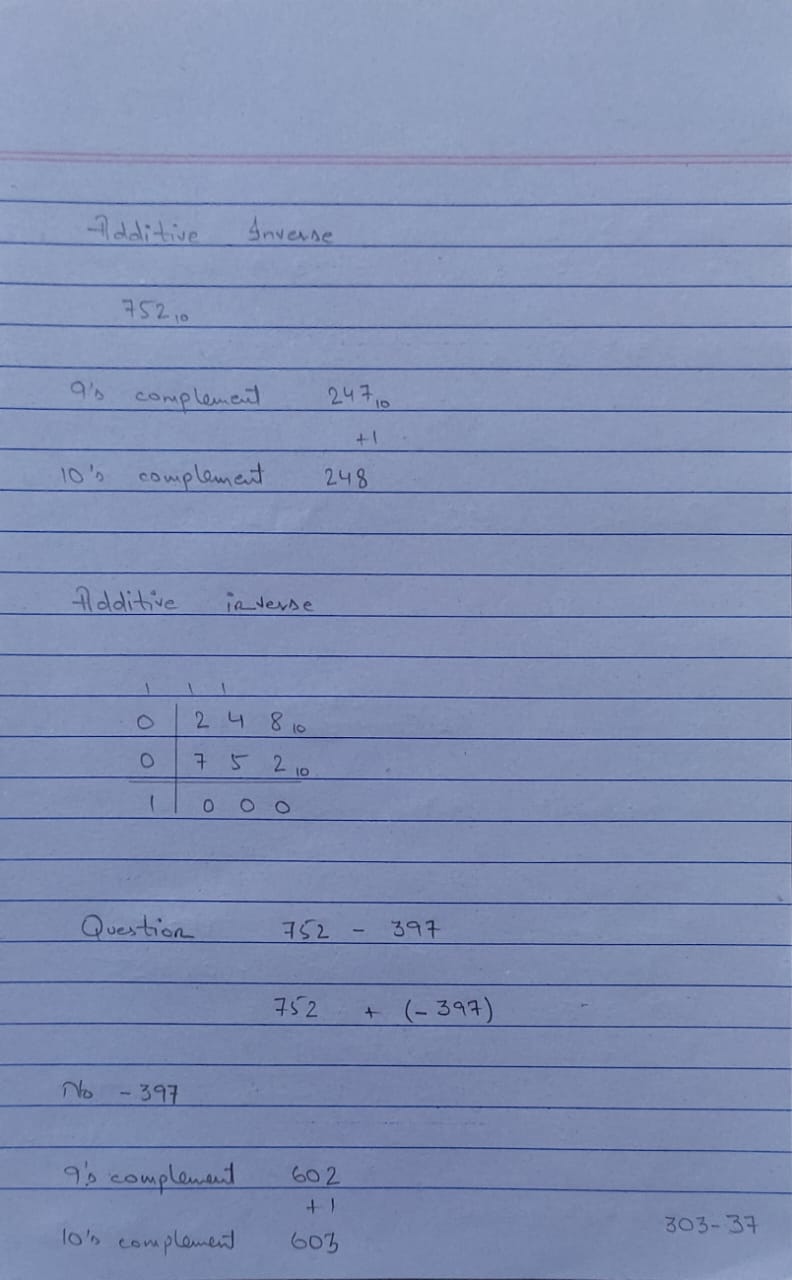 Additive Inverse
752₁₀
9's complement 247₁₀
+1
10's complement 248
Additive inverse
1 1 1
0 | 2 4 8 ₁₀
0 | 7 5 2 ₁₀
1 | 0 0 0
Question 752 - 397
752 + (-397)
No -397
9's complement 602
+1
10's complement 603
303-37